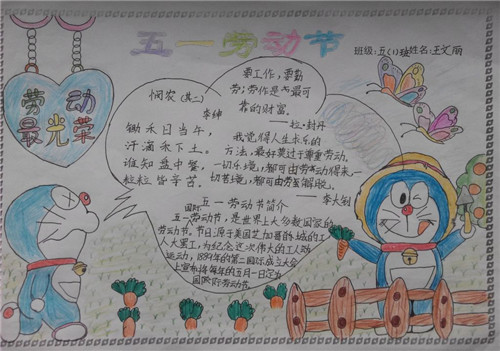 五一劳动节
班级:五(1)班姓名:王文丽
劳动
最光荣
悯农(其二)
李绅
锄禾日当午,
汗滴禾下土。
谁知盘中餐,
粒粒皆辛苦。
要工作,要勤
劳:劳作是最可
靠的财富。
——拉·封丹
我觉得人生求乐的
方法,最好莫过于尊重劳动。
一切乐境,都可由劳动得来,
一切苦境,都可由劳动解脱。
——李大钊
国际五一劳动节简介
五一劳动节,是世界上大多数国家的
劳动节。节日源于美国芝加哥城的工
人大罢工,为纪念这次伟大的工人
运动,1889年的第二国际成立大会
上宣布将每年的五月一日定为
国际劳动节。